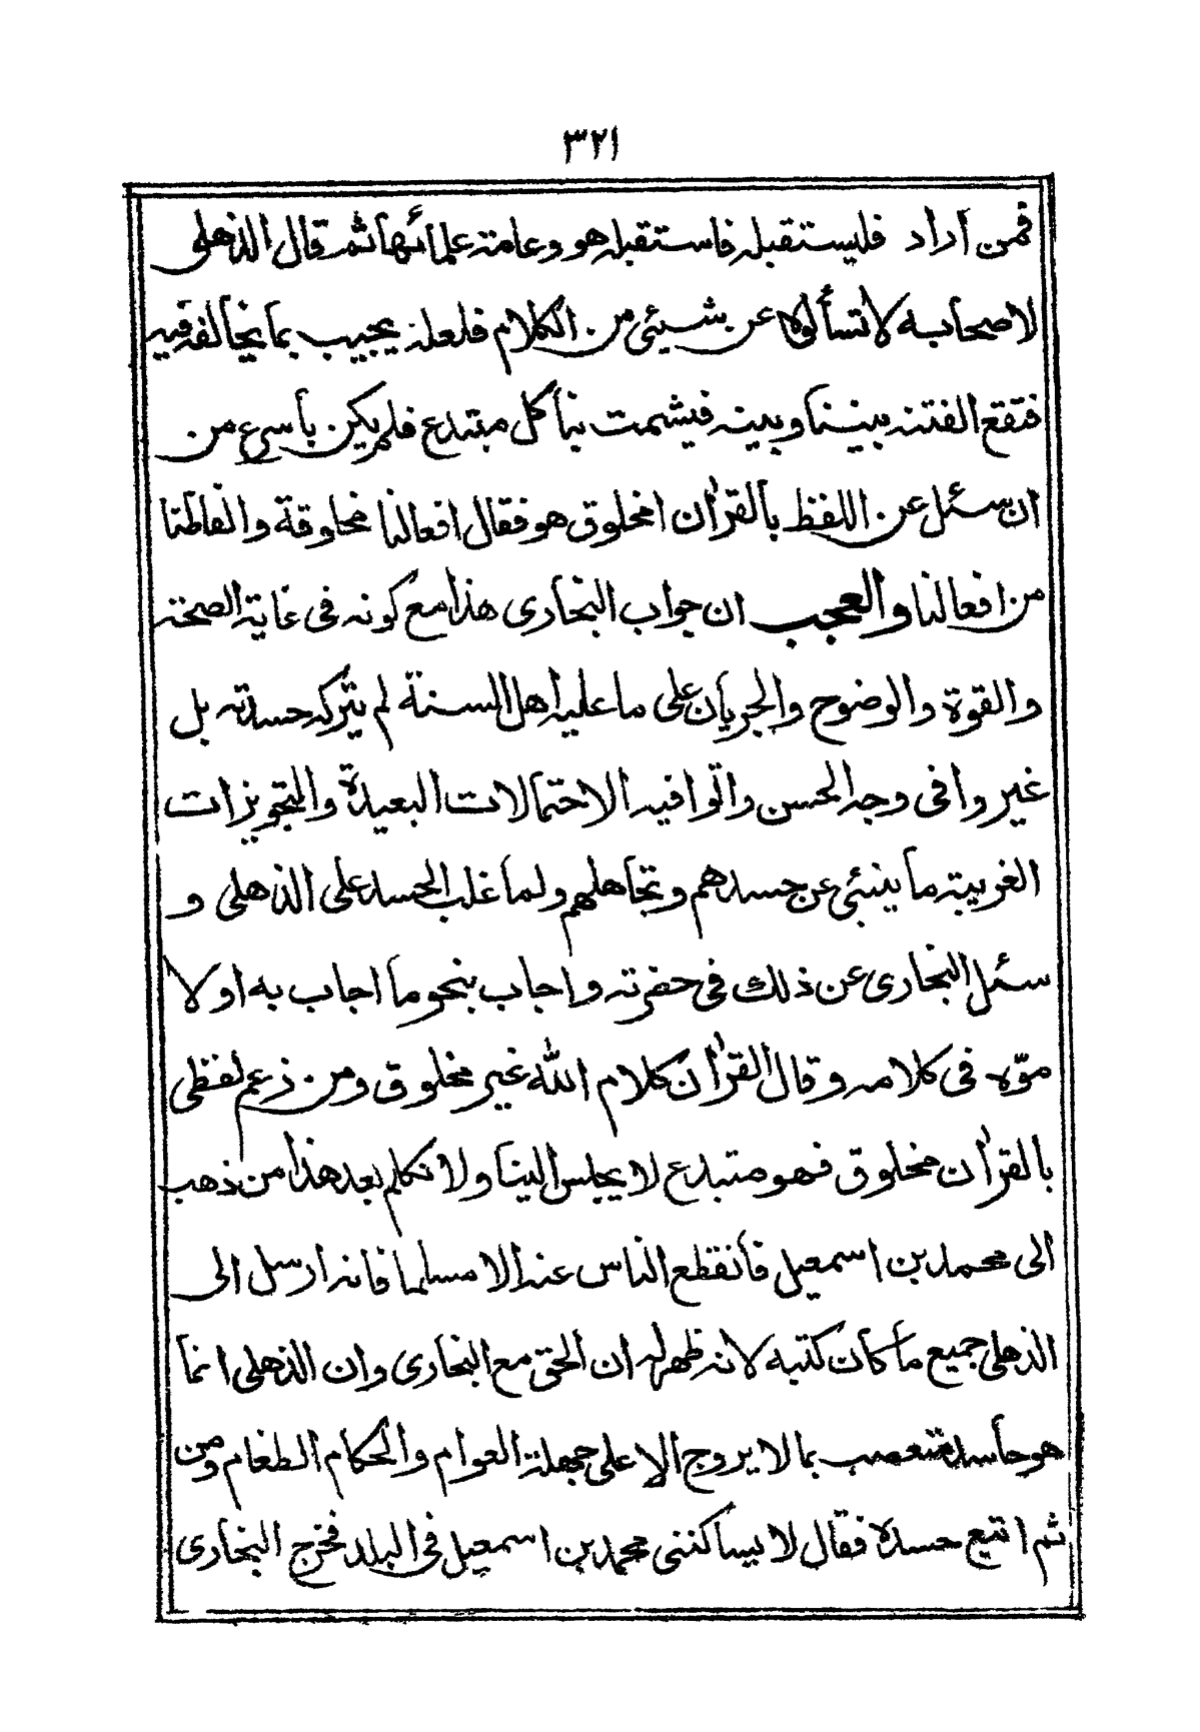 ٣٢١
فمن اراد فليستقبله فاستقبله هو وعامة علمائها ثم قال الذهلى
لاصحابه لا تسألوه عن شيئى من الكلام فلعله يجيب بما يخالف فيه
فتقع الفتنة بيننا وبينه فيشمت بنا كل مبتدع فلم يكن بأسرع من
ان سئل عن اللفظ بالقرأن امخلوق هو فقال افعالنا مخلوقة والفاظنا
من افعالنا والعجب ان جواب البخارى هذا مع كونه فى غاية الصحة
والقوة والوضوح والجريان على ما عليه اهل السنة لم يتركه حسدته بل
غيروا فى وجه الحسن واتوا فيه الاحتمالات البعيدة والتجويزات
الغريبة ما ينبئى عن حسدهم وتجاهلهم ولما غلب الحسد على الذهلى و
سئل البخارى عن ذلك فى حضرته واجاب بنحو ما اجاب به اولا
موّه فى كلامه وقال القرأن كلام الله غير مخلوق ومن زعم لفظى
بالقرأن مخلوق فهو متبدع لا يجلس الينا ولا نكلم بعد هذا من ذهب
الى محمد بن اسمعيل فانقطع الناس عنه الا مسلما فانه ارسل الى
الذهلى جميع ما كان كتبه لانه ظهر له ان الحق مع البخارى وان الذهلى انما
هو حاسد متعصب بما لا يروج الا على جهلة العوام والحكام الطغام ومن
ثم اتبع حسده فقال لا يساكننى محمد بن اسمعيل فى البلد فخرج البخارى